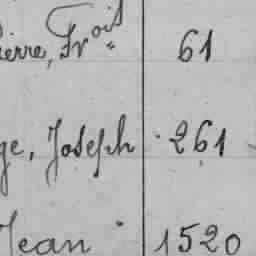 ierre, Frois 61
ge, Joseph 261
Jean 1520